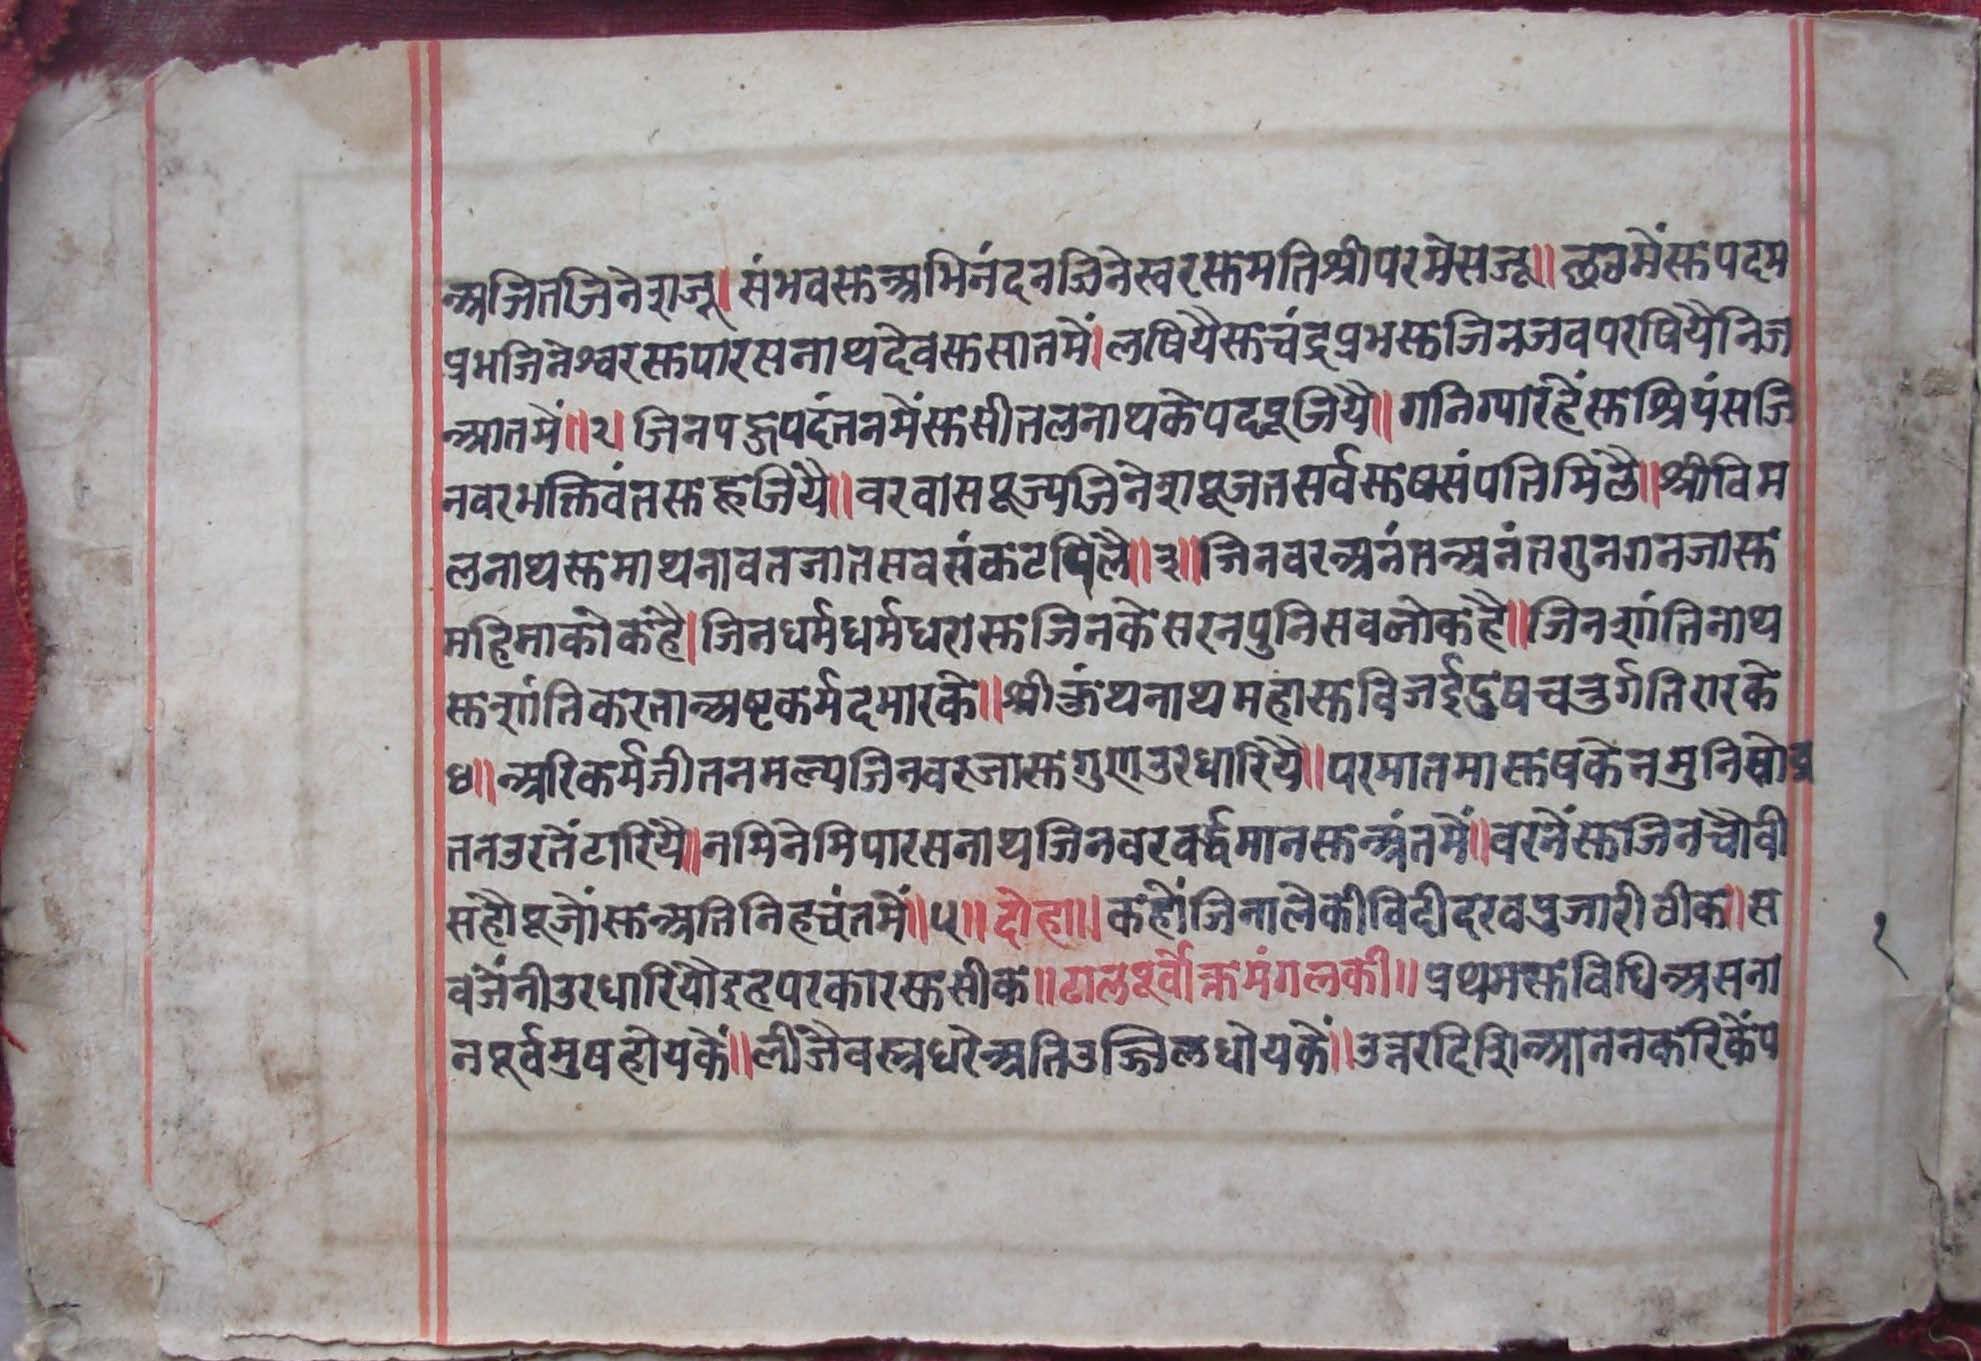 अजितजिनेशजू। संभवसुअभिनंदनजिनेस्वरसुमतिश्रीपरमेसजू॥ छठमेंसुपदम
प्रभजिनेश्वरसुपारसनाथदेवसुसातमें। लषियैसुचंद्रप्रभसुजिनजवपरषियैनिज
आतमें॥२। जिनपहुपदंतनमेंसुसीतलनाथकेपदपूजियै॥ गनिग्यारहेंसुश्रियंसजि
नवरभक्तिवंतसुहूजियै॥ वरवासपूज्यजिनेशपूजतसर्वसुषसंपतिमिलै॥ श्रीविम
लनाथसुमाथनावतजातसवसंकटपिलै॥३॥ जिनवरअनंतअनंतगुनगनजासु
महिमाकोकहै। जिनधर्मधर्मधरासुजिनकेसरनपुनिसवलोकहै॥ जिनशांतिनाथ
सुशांतिकरताअष्टकर्मदमारके॥ श्रीकुंथनाथमहासुविजईदुषचतुर्गतिटारके
४॥ अरिकर्मजीतनमल्यजिनवरजासुगुणउरधारियै॥ परमातमासुषकेनमुनिसोव्र
तनउरतेंटारियै॥ नमिनेमिपारसनाथजिनवरवर्द्धमानसुअंतमें॥ वरनेंसुजिनचौवी
सहौपूजोंसुअतिनिहचंतमें॥५॥ दोहा॥ कहोंजिनालेकीविदीदरवपुजारीठीक॥ स
वजेंनीउरधारियौइहपरकारसुसीक॥ ढालपूर्वोक्तमंगलकी॥ प्रथमसुविधिअसना
नपूर्वमुषहोयकें॥ लीजैवस्त्रधरेअतिउज्जिलधोयकें॥ उत्तरदिशिआननकरिकेंप
१